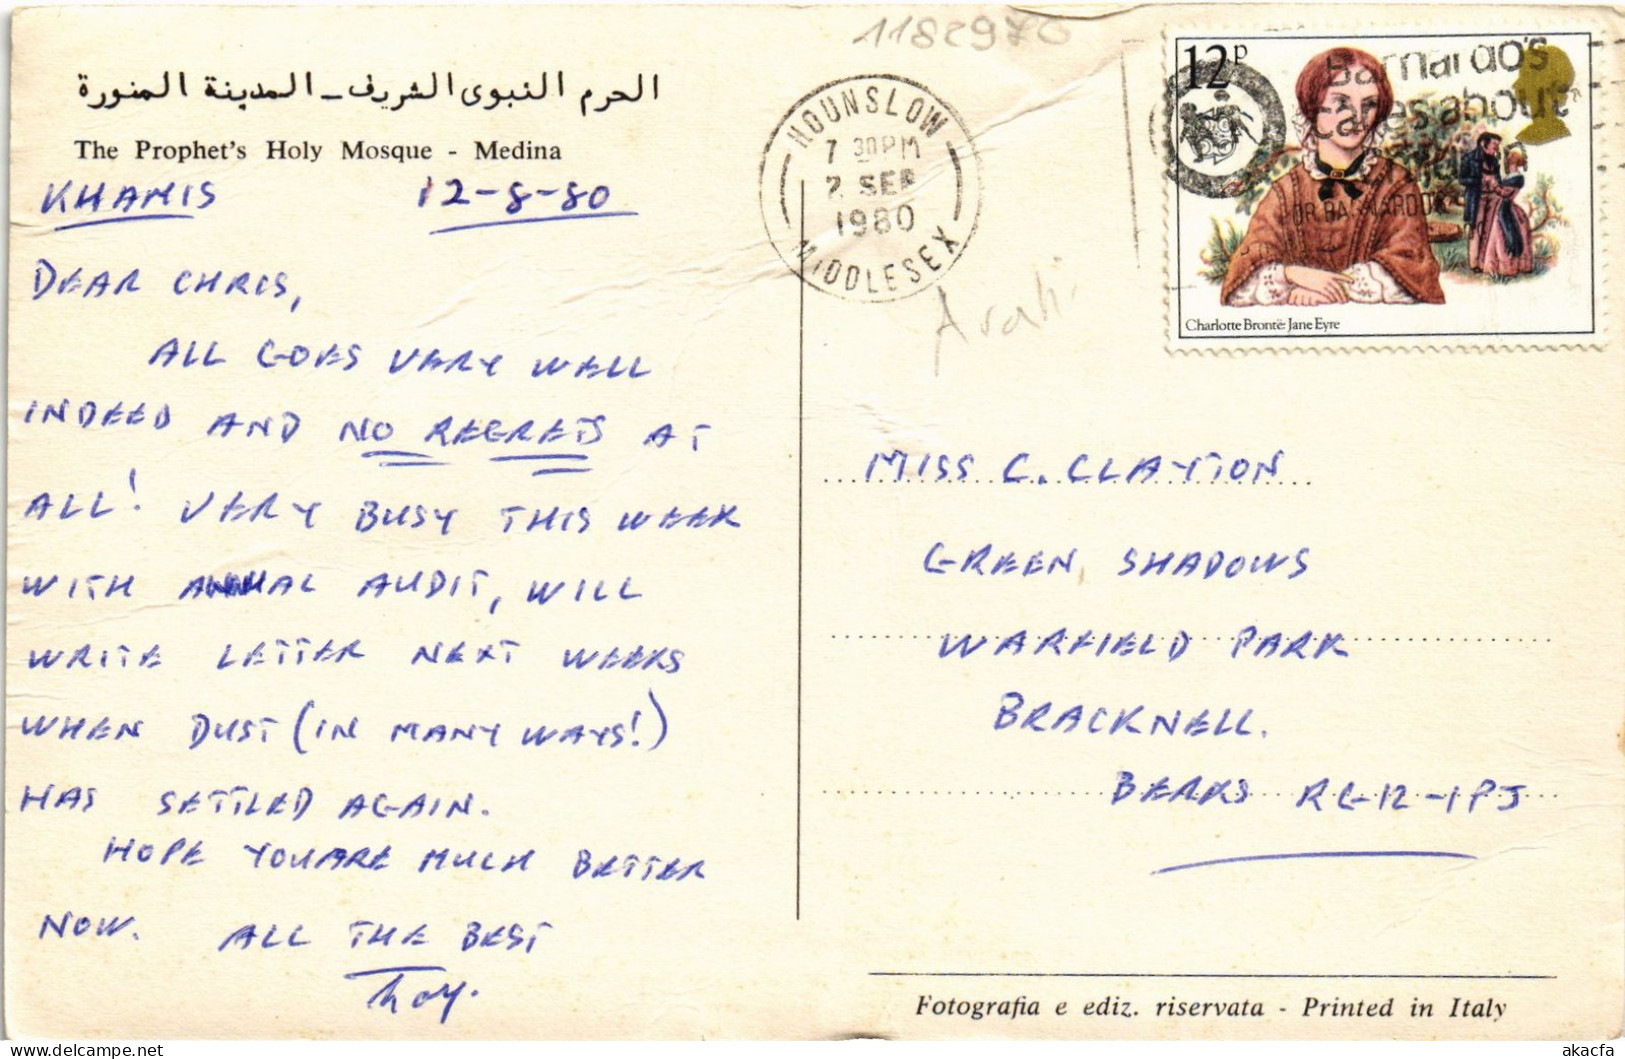 1182970
الحرم النبوى الشريف ـ المدينة المنورة
The Prophet's Holy Mosque - Medina
KHAMIS 12-8-80
DEAR CHRIS,
ALL GOES VERY WELL
INDEED AND NO REGRETS AT
ALL! VERY BUSY THIS WEEK
WITH ANNUAL AUDIT, WILL
WRITE LETTER NEXT WEEKS
WHEN DUST (IN MANY WAYS!)
HAS SETTLED AGAIN.
HOPE YOU ARE MUCH BETTER
NOW. ALL THE BEST
HOUNSLOW
7 30 PM
2 SEP
1980
MIDDLESEX
12P
Barnardo's
cares about
Charlotte Brontë: Jane Eyre
MISS C. CLAYTON
GREEN SHADOWS
WARFIELD PARK
BRACKNELL.
BERKS RG-12-1PJ
Fotografia e ediz. riservata - Printed in Italy
akacfa